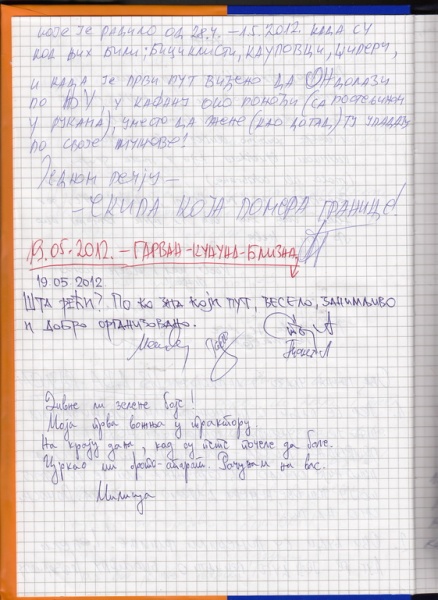 које је радило од 28.4. – 1.5. 2012. када су
код њих били: бициклисти, кауповци, џипери,
и када је први пут виђено да ОН долази
по њу у кабану око поноћи (са постељином
у рукама), уместо да жене (као дотад) ту упадају
по своје мужеве!
Једном речју –
– ЕКИПА КОЈА ПОМЕРА ГРАНИЦЕ!
19.05.2012. – ГАРВАН-КУДУНА-БЛИЗНА
19.05.2012
Шта рећи? По ко зна који пут, весело, занимљиво
и добро организовано.
Дивне ли зелене боје!
Моја прва вожња у трактору.
На крају дана, кад су пете почеле да боле.
Цркао ми фото-апарат. Рачунам на вас.
Милица